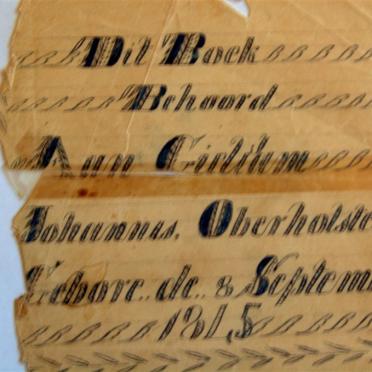 Dit Boek
Behoord
Aan
Johannus. Oberholste
Gebore.. de.. 8 Septem
181,5